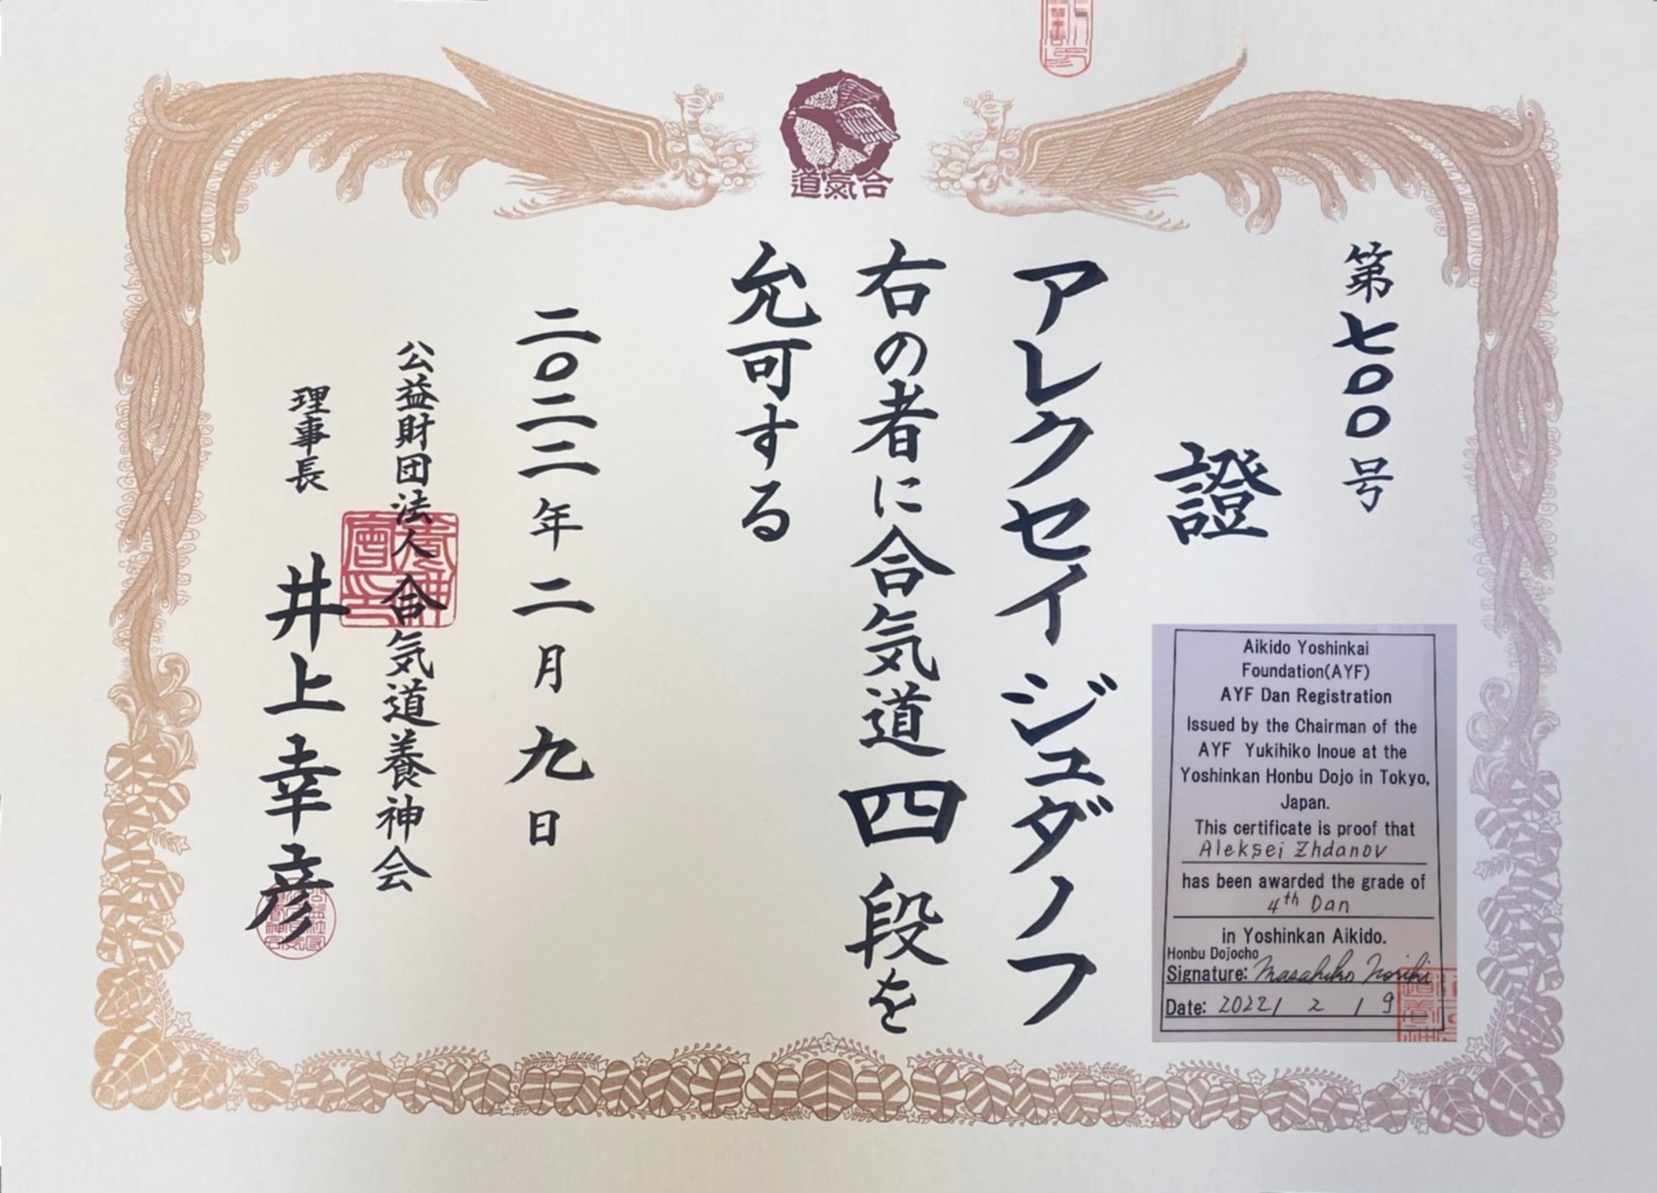 合氣道
第七〇〇号
證
アレクセイ ジュダノフ
右の者に合気道四段を
允可する
二〇二二年二月九日
公益財団法人合気道養神会
理事長 井上幸彦
Aikido Yoshinkai
Foundation(AYF)
AYF Dan Registration
Issued by the Chairman of the
AYF Yukihiko Inoue at the
Yoshinkan Honbu Dojo in Tokyo,
Japan.
This certificate is proof that
Aleksei Zhdanov
has been awarded the grade of
4th Dan
in Yoshinkan Aikido.
Honbu Dojocho
Signature: Masahiko Noriki
Date: 2022/ 2 / 9